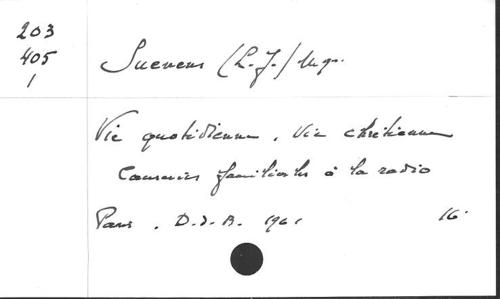 203
405
1
Suenens (L.-J.) Mgr.
Vie quotidienne, vie chrétienne
Causeries familiales à la radio
Paris. D.d.B. 1961 16°